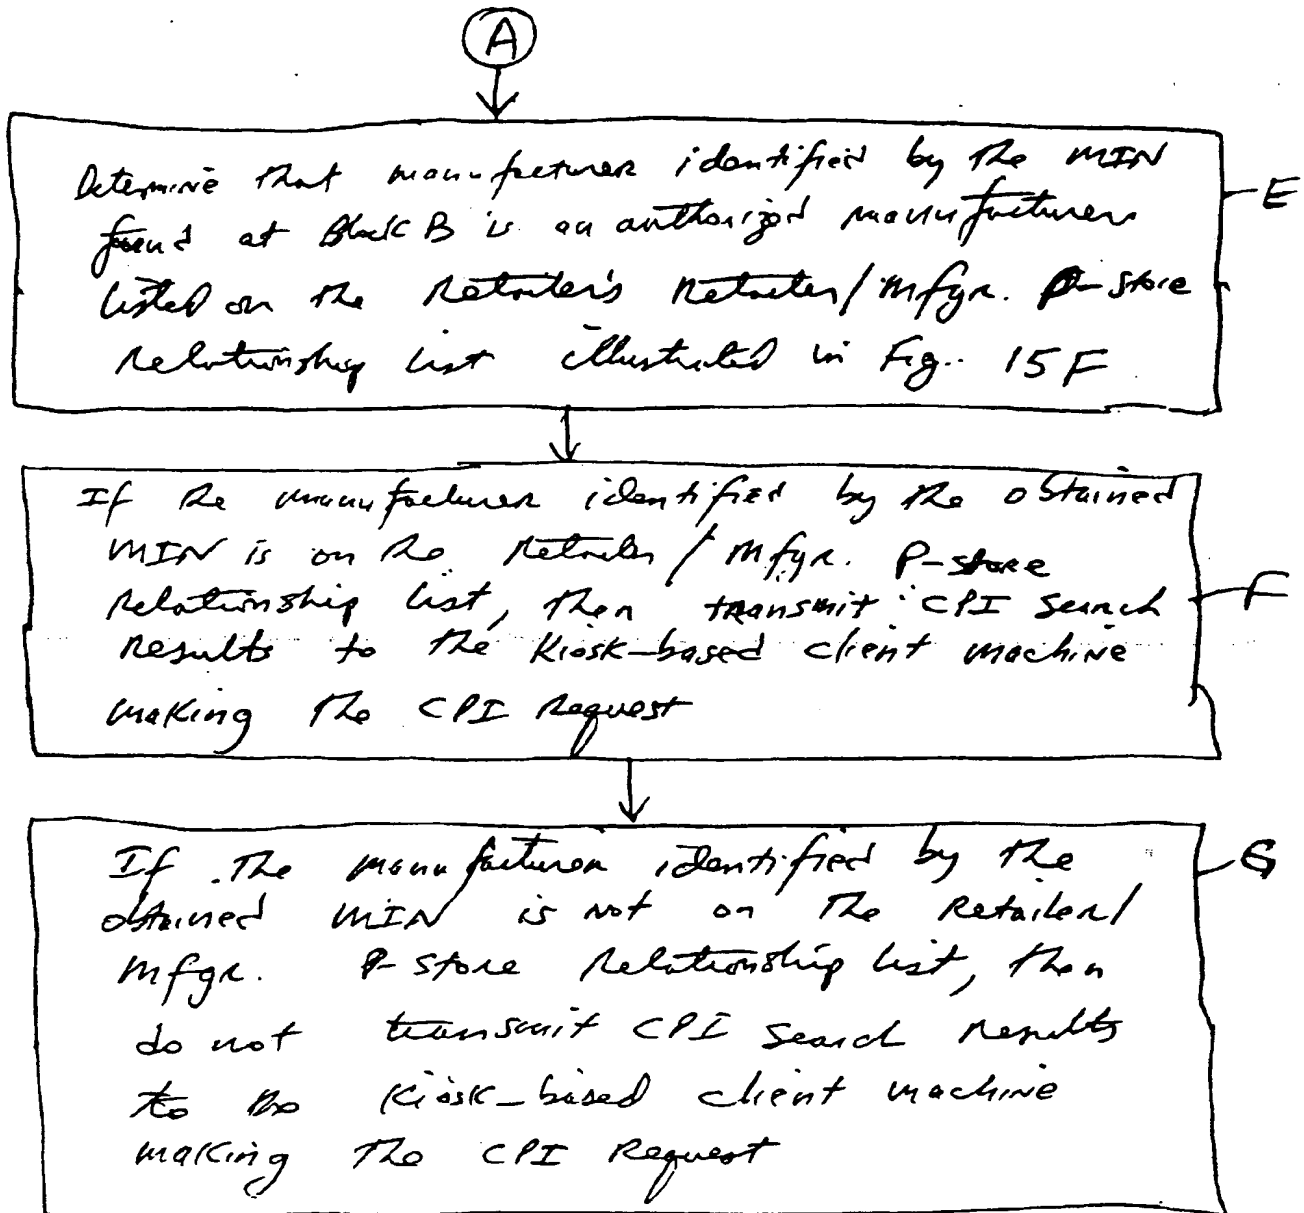 A
Determine that manufacturer identified by the MIN
found at Block B is an authorized manufacturer
listed on the Retailer's Retailer/Mfgr. P-store
Relationship list illustrated in Fig. 15F
E
If the manufacturer identified by the obtained
MIN is on the Retailer / Mfgr. P-store
Relationship list, then transmit CPI Search
Results to the Kiosk-based client machine
making the CPI Request
F
If the manufacturer identified by the
obtained MIN is not on the Retailer/
Mfgr. P-store Relationship list, then
do not transmit CPI Search Results
to the Kiosk-based client machine
making the CPI Request
G